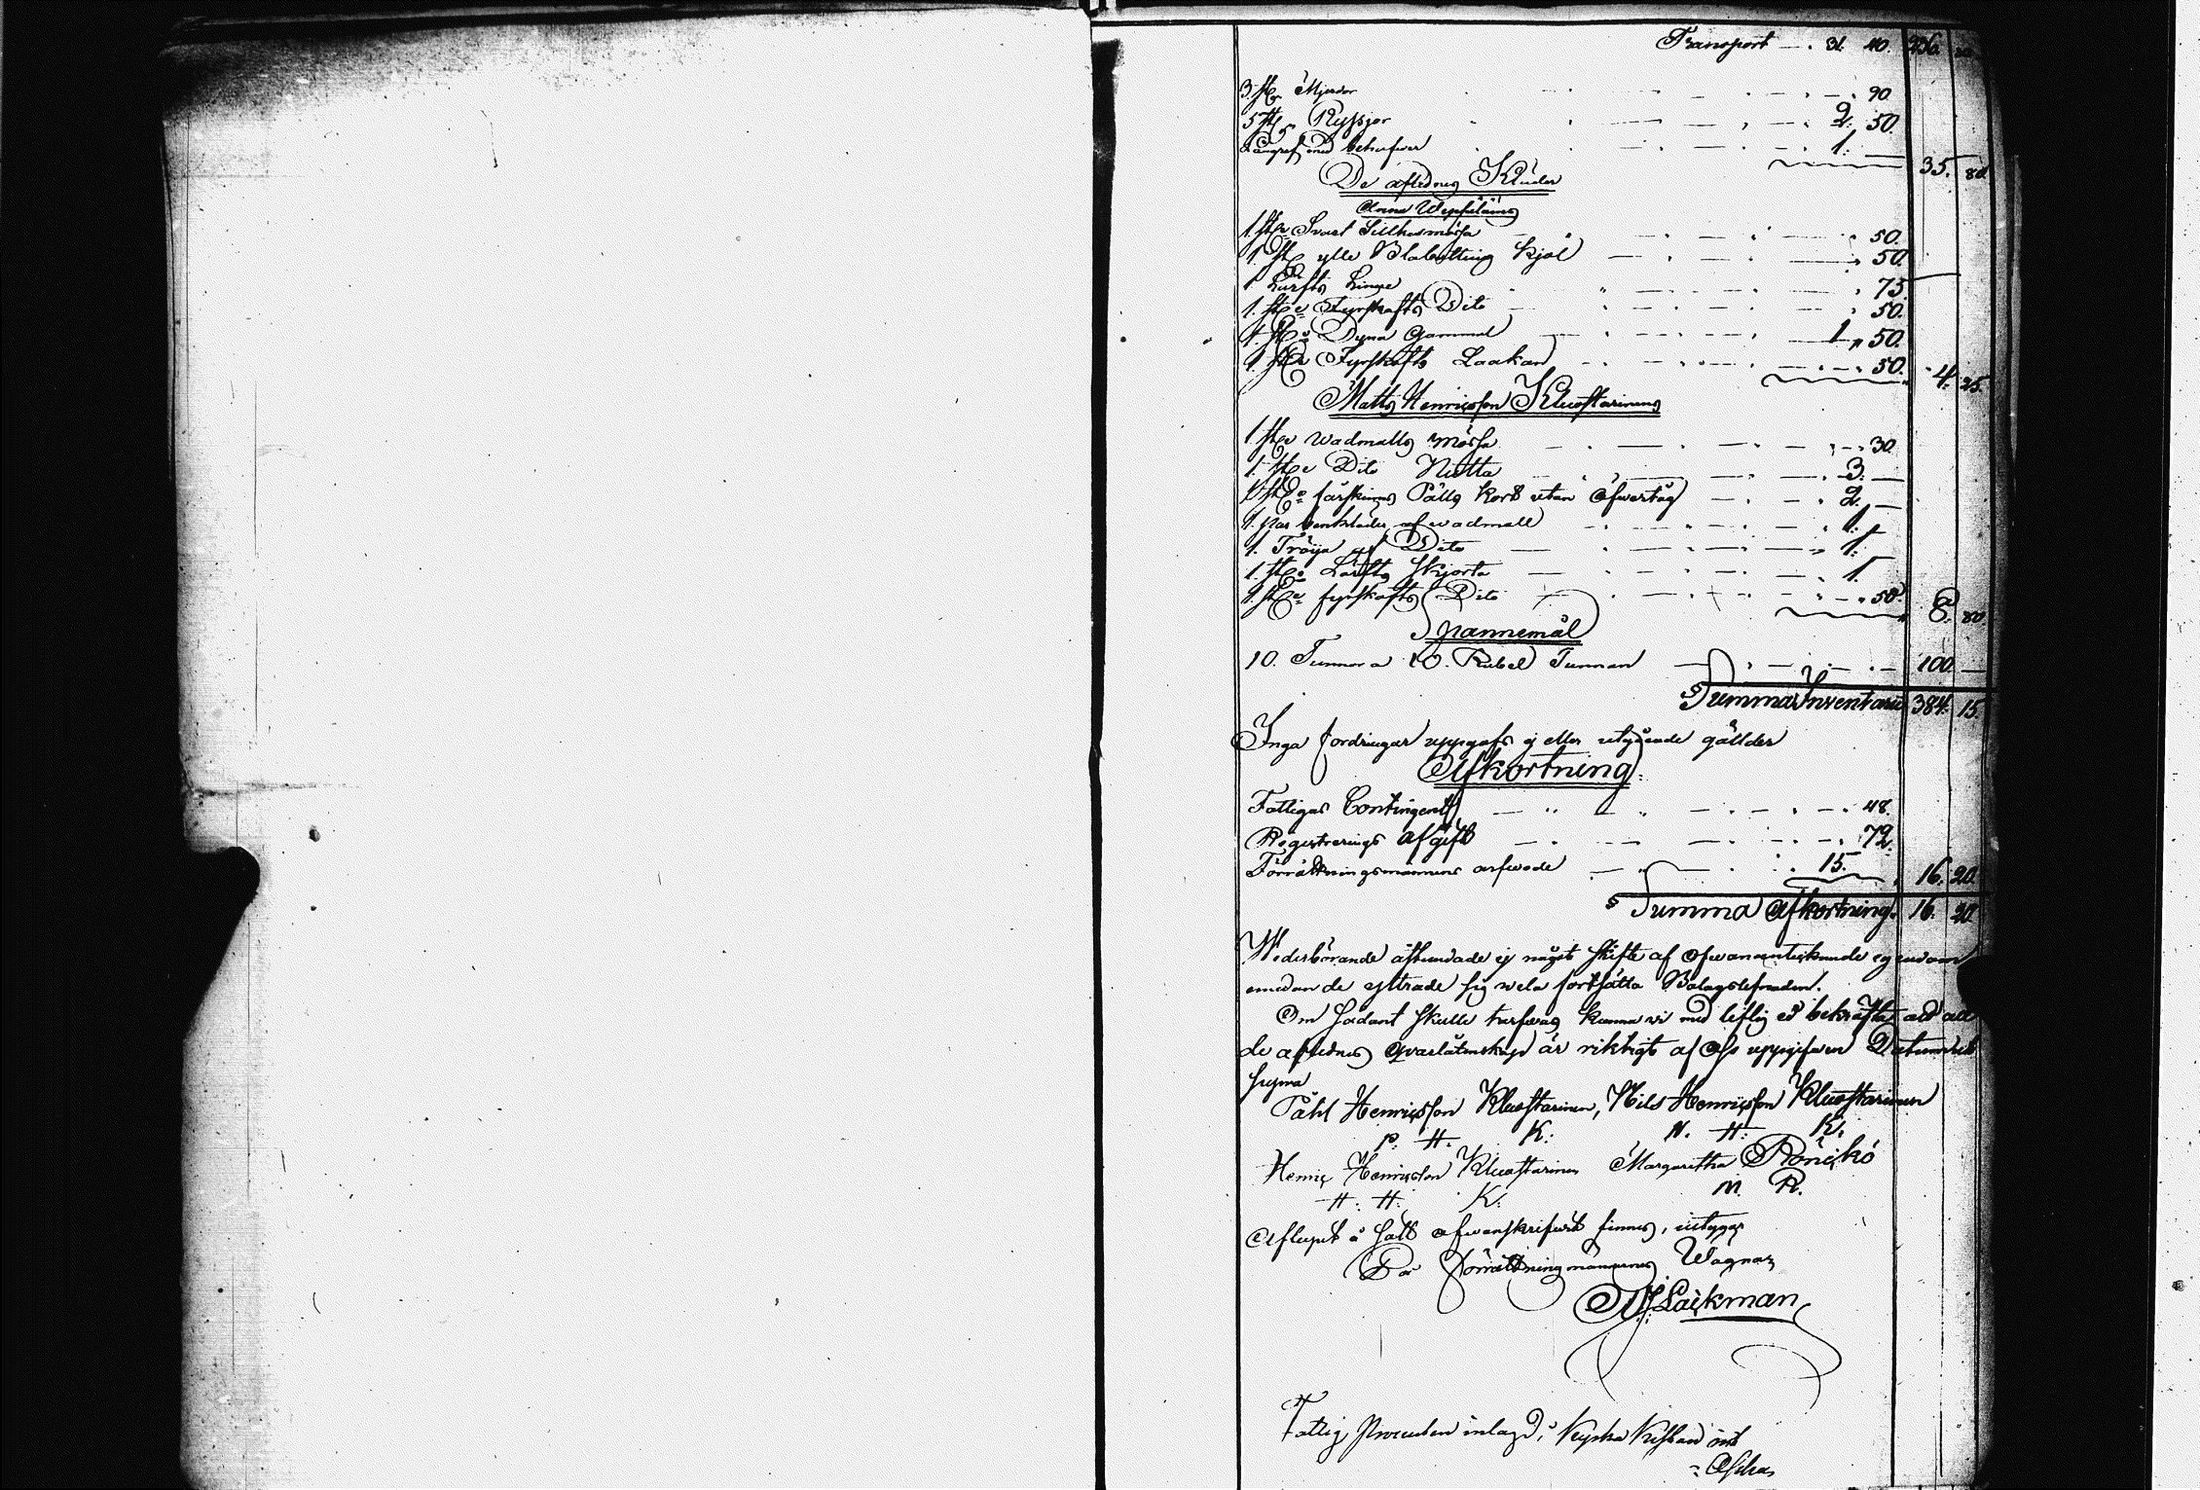 Transport — . 31. 40. 236.
3 st. Mjerdor — . — 90.
5 st. Ryssjor — . — 2. 50.
Långref med behufwer — . — 1. — 35. 80.
De aflednes Kläder
Anna
1. st. Svart Silkesmössa — 50.
1. st. ylle Kjol — 50.
1 Lärfts Linge — 75.
1. st. Fyrskafts Dito — 50.
1. st. Dyna Gammal — 1. 50.
1. st. Fyrskafts Laakan — 50. 4. 25.
Matts Henricsson Kluostarinens
1 st. wadmalls mössa — 30.
1. st. Dito Nutta — 3. —
1 st. fårskinns Pälls kort utan öfwertåg — 2. —
1. par benkläder af wadmall — 1. —
1. Tröija af Dito — 1. —
1. st. Lärfts skjorta — 1.
1. st. fyrskafts Dito — 50. 8. 80.
Spannemål
10. Tunnor a 10. Rubel Tunnan — 100. —
Summa Inventarii 384. 15.
Inga fordringar uppgafs ej eller utgående gällder
Afkortning.
Fattigas Contingent — 48.
Registrerings afgift — 72.
Förrättningsmännens arfwode — 15. 16. 20.
Summa afkortning. 16. 20.
Wederbörande åstundade ej något skifte af ofwananteiknade egendom
emedan de yttrade sig wela fortsätta Bolagslefnaden.
Om sådant skulle tarfwas kunna vi med liflig ed bekräfta att all
de aflednes qvarlåtenskap är riktigt af oss uppgifwen Datum ut
supra
Påhl Henricsson Kluostarinen, Nils Henricsson Kluostarinen
P. H. K: N. H: K.
Henric Henricsson Kluostarinen Margaretha Rönckö
H: H: K: M. R.
Aflupit å sätt ofwanskrifwit finnes, intygar
För Förrättningsmännernes Wägnar
Lackman
Fattig Procenten inlagd, i Kyrka Kistan